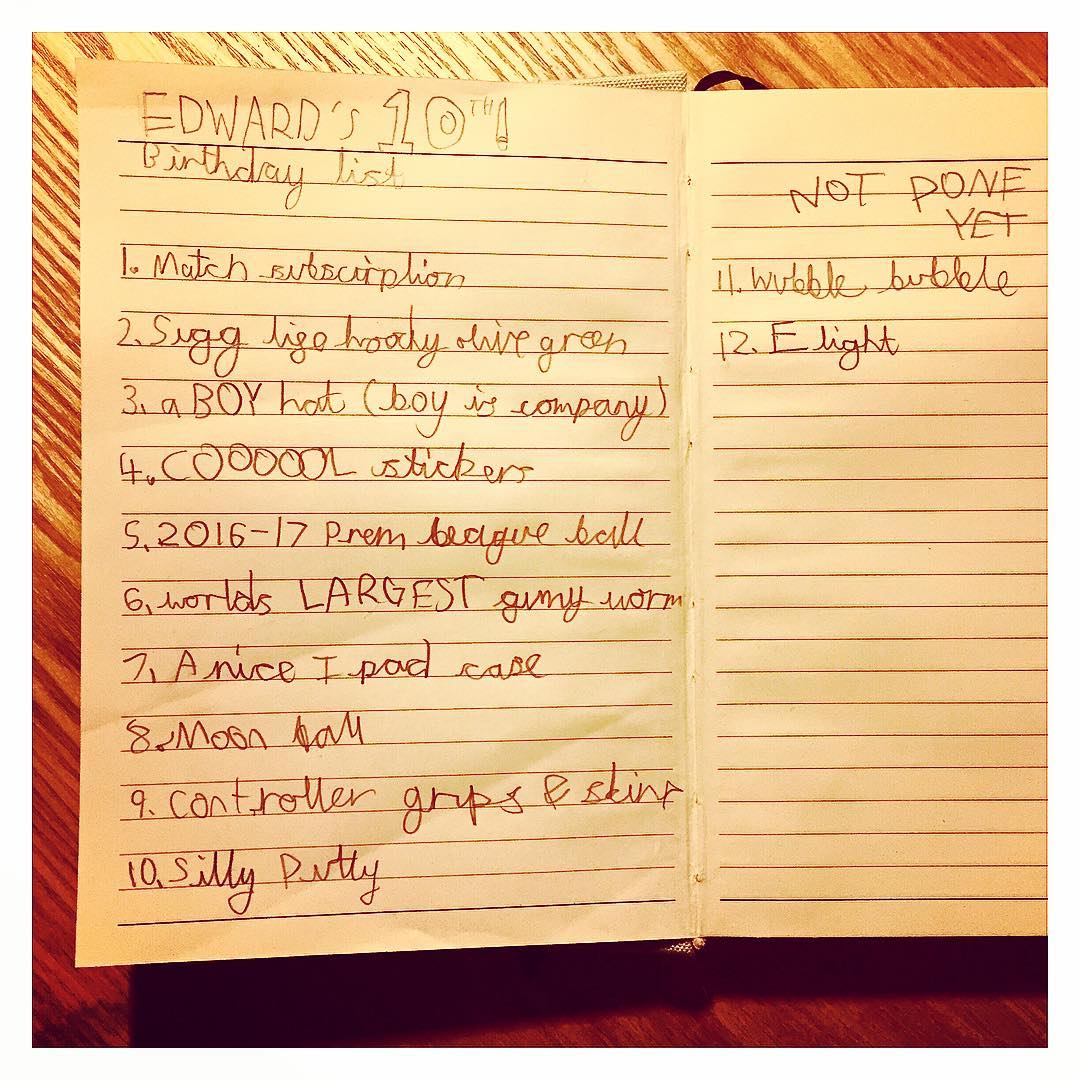 EDWARD'S 10TH!
Birthday list
1. Match subscirption
2. Sugg ligo hoody olive green
3. a BOY hat (boy is company)
4. COOOOOL stickers
5. 2016-17 Prem league ball
6. worlds LARGEST gumy worm
7. A nice I pad case
8. Moon ball
9. Controller grips & skins
10. Silly Putty
NOT DONE
YET
11. Wubble bubble
12. E light